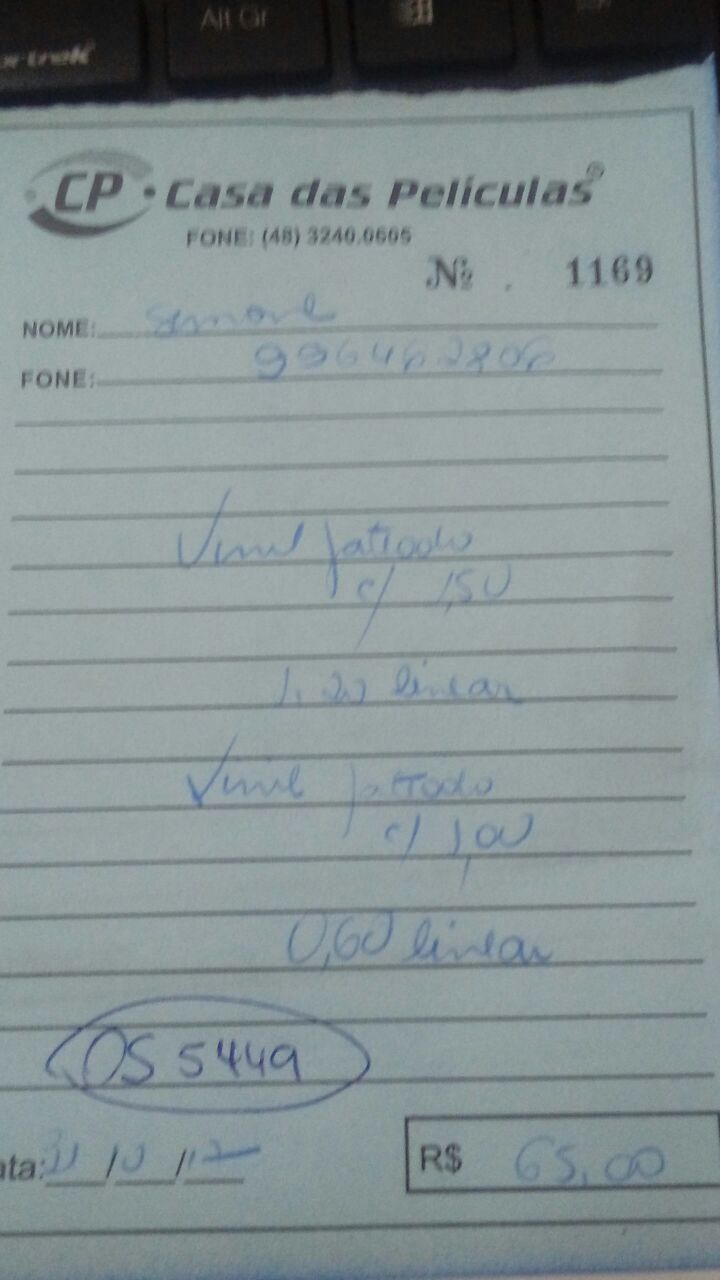 Alt Gr
CP · Casa das Películas®
FONE: (48) 3240.0605
Nº . 1169
NOME: Simone
FONE: 996462806
Vinil Jatiado
c/ 1,50
1,20 linear
Vinil Jateado
c/ 1,00
0,60 linear
OS 5449
ata: / /
R$ 65,00